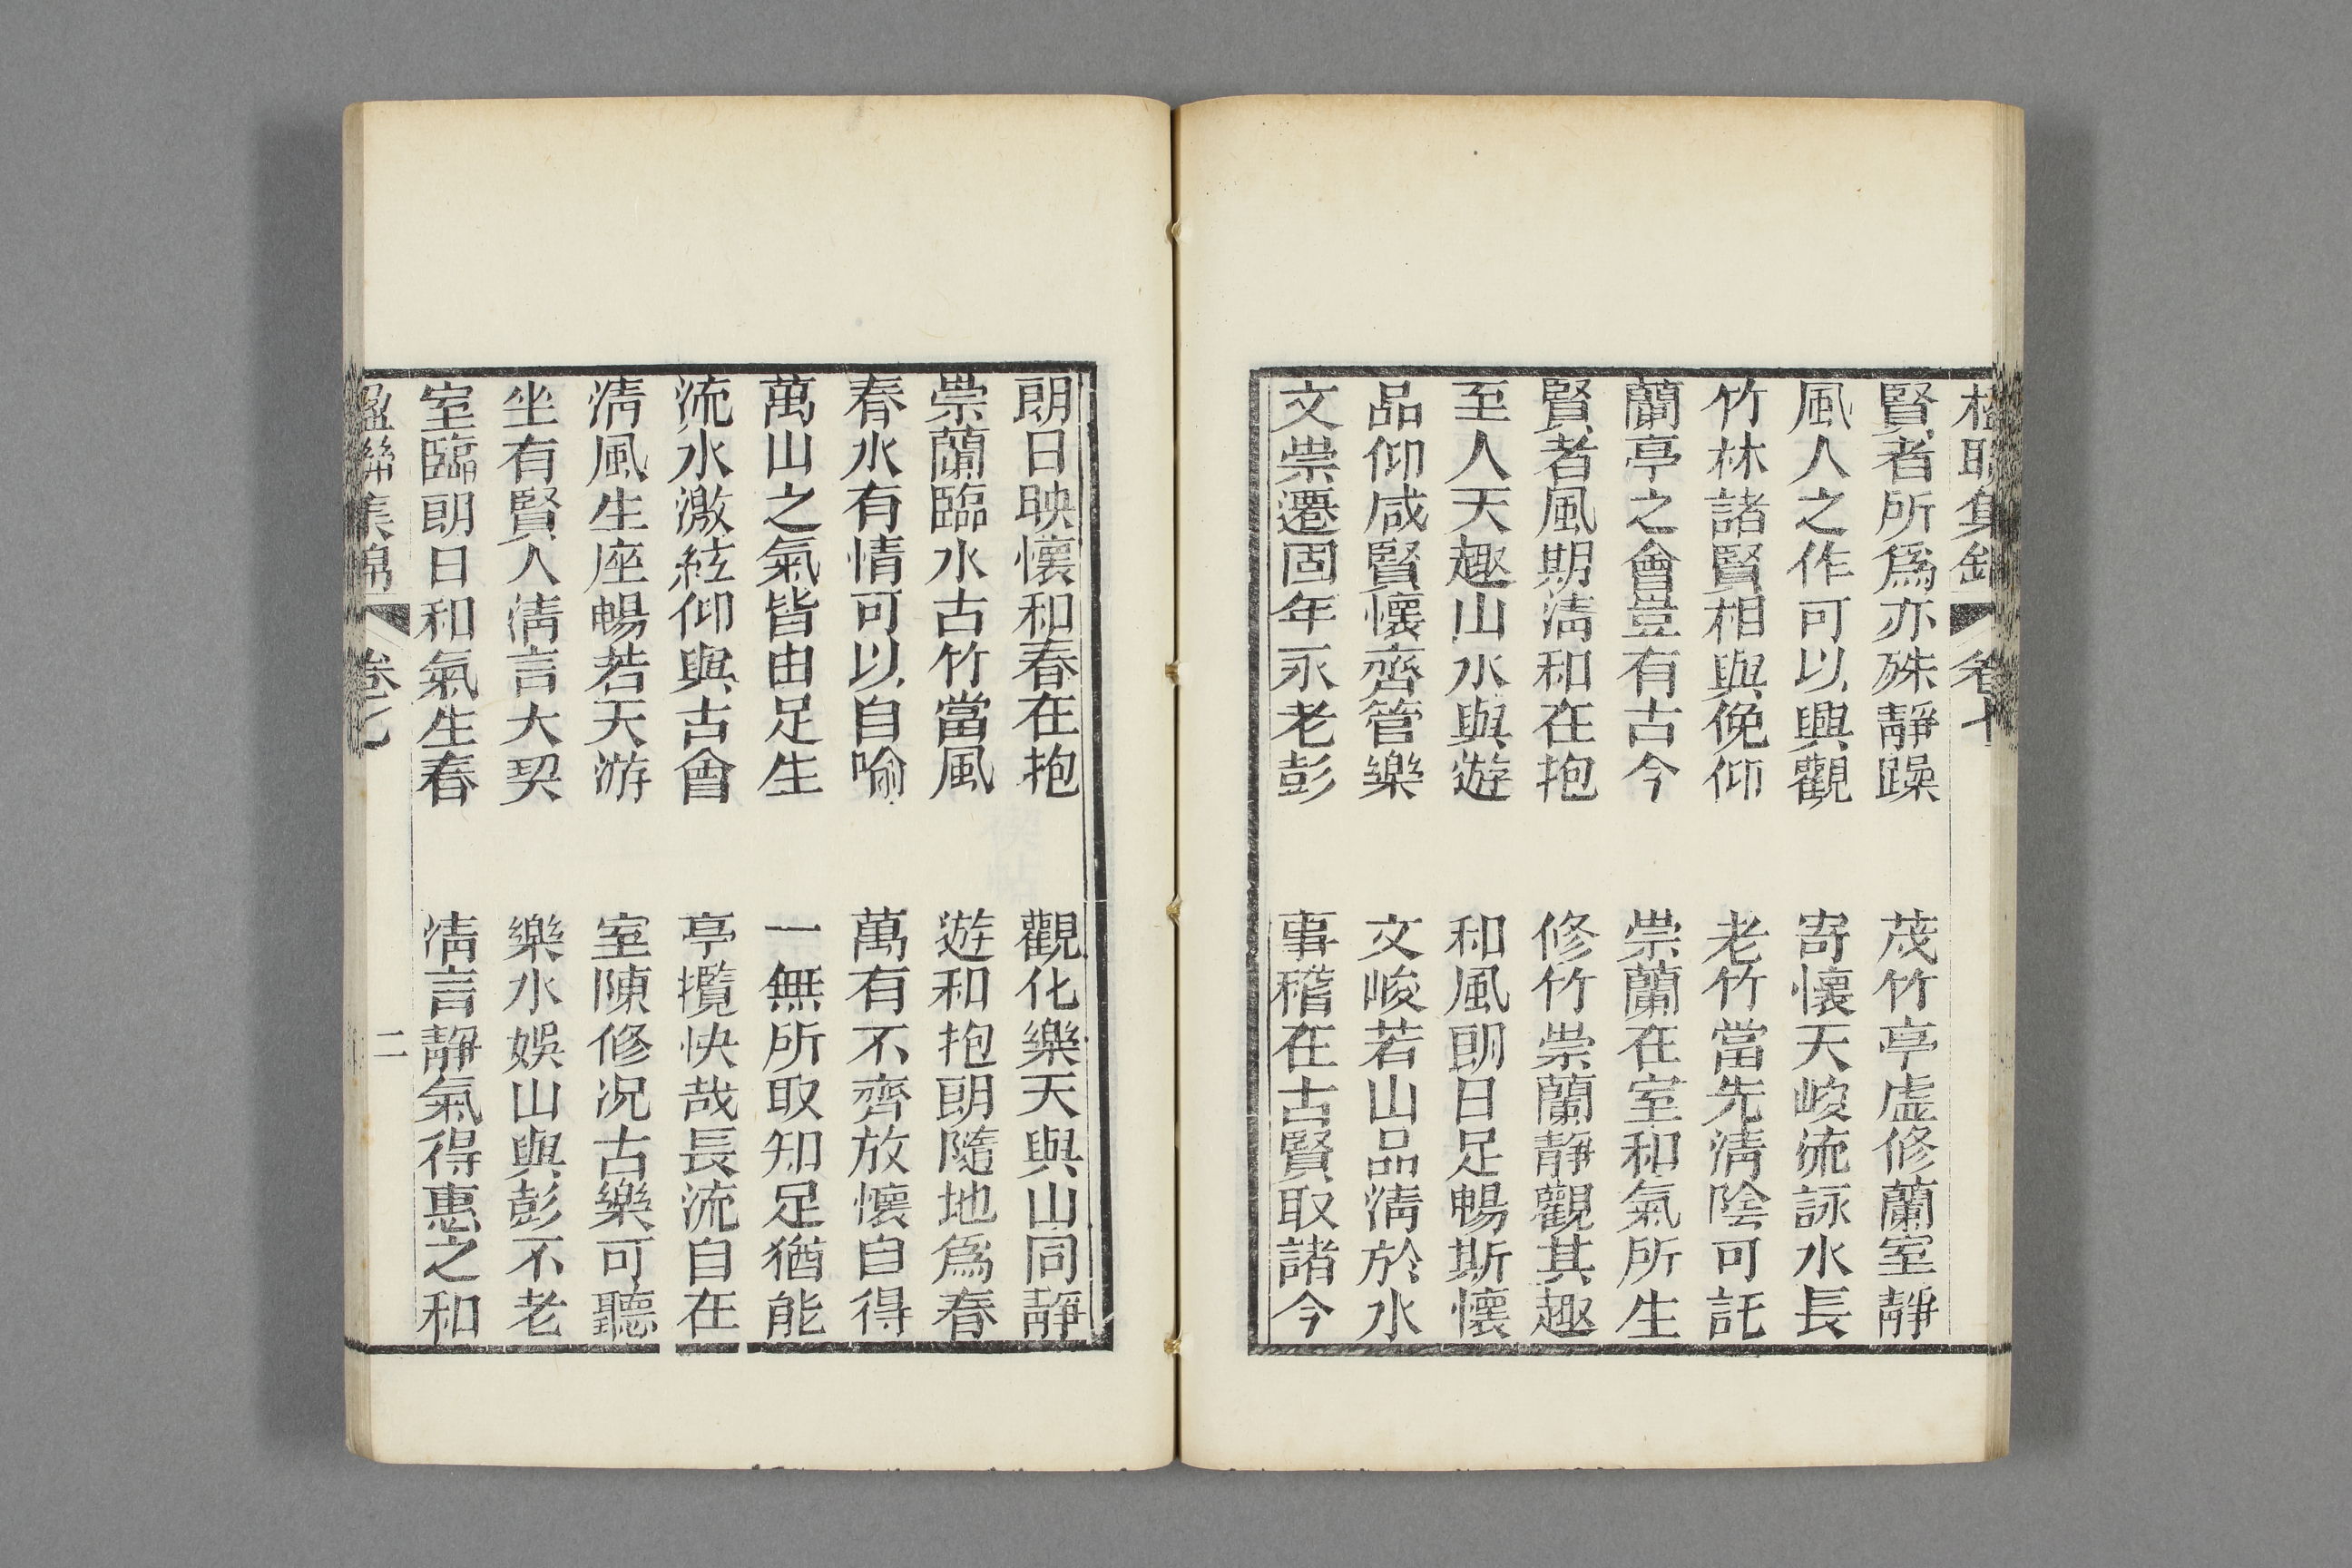 賢者所爲亦殊靜躁　茂竹亭虛修蘭室靜
風人之作可以興觀　寄懷天峻流詠水長
竹林諸賢相與俛仰　老竹當先淸陰可託
蘭亭之會豈有古今　崇蘭在室和氣所生
賢者風期淸和在抱　修竹崇蘭靜觀其趣
至人天趣山水與遊　和風朗日足暢斯懷
品仰咸賢懷齊管樂　文峻若山品淸於水
文崇遷固年永老彭　事稽在古賢取諸今
朗日映懷和春在抱　觀化樂天與山同靜
崇蘭臨水古竹當風　遊和抱朗隨地爲春
春水有情可以自喻　萬有不齊放懷自得
萬山之氣皆由足生　一無所取知足猶能
流水激絃仰與古會　亭攬快哉長流自在
淸風生座暢若天游　室陳修况古樂可聽
坐有賢人淸言大契　樂水娛山與彭不老
室臨朗日和氣生春　淸言靜氣得惠之和
楹聯集錦　卷七　二